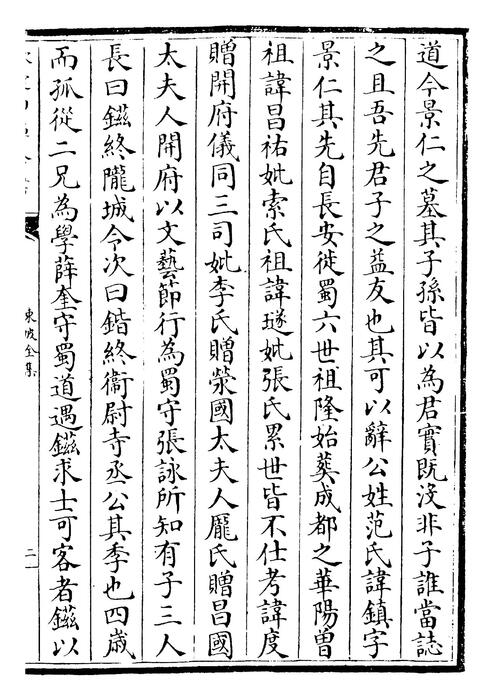 道今景仁之墓其子孫皆以為君實既沒非子誰當誌
之且吾先君子之益友也其可以辭公姓范氏諱鎮字
景仁其先自長安徙蜀六世祖隆始葬成都之華陽曾
祖諱昌祐妣索氏祖諱璲妣張氏累世皆不仕考諱度
贈開府儀同三司妣李氏贈滎國太夫人龐氏贈昌國
太夫人開府以文藝節行為蜀守張詠所知有子三人
長曰鎡終隴城令次曰鍇終衞尉寺丞公其季也四歳
而孤從二兄為學薛奎守蜀道遇鎡求士可客者鎡以
東坡全集
二